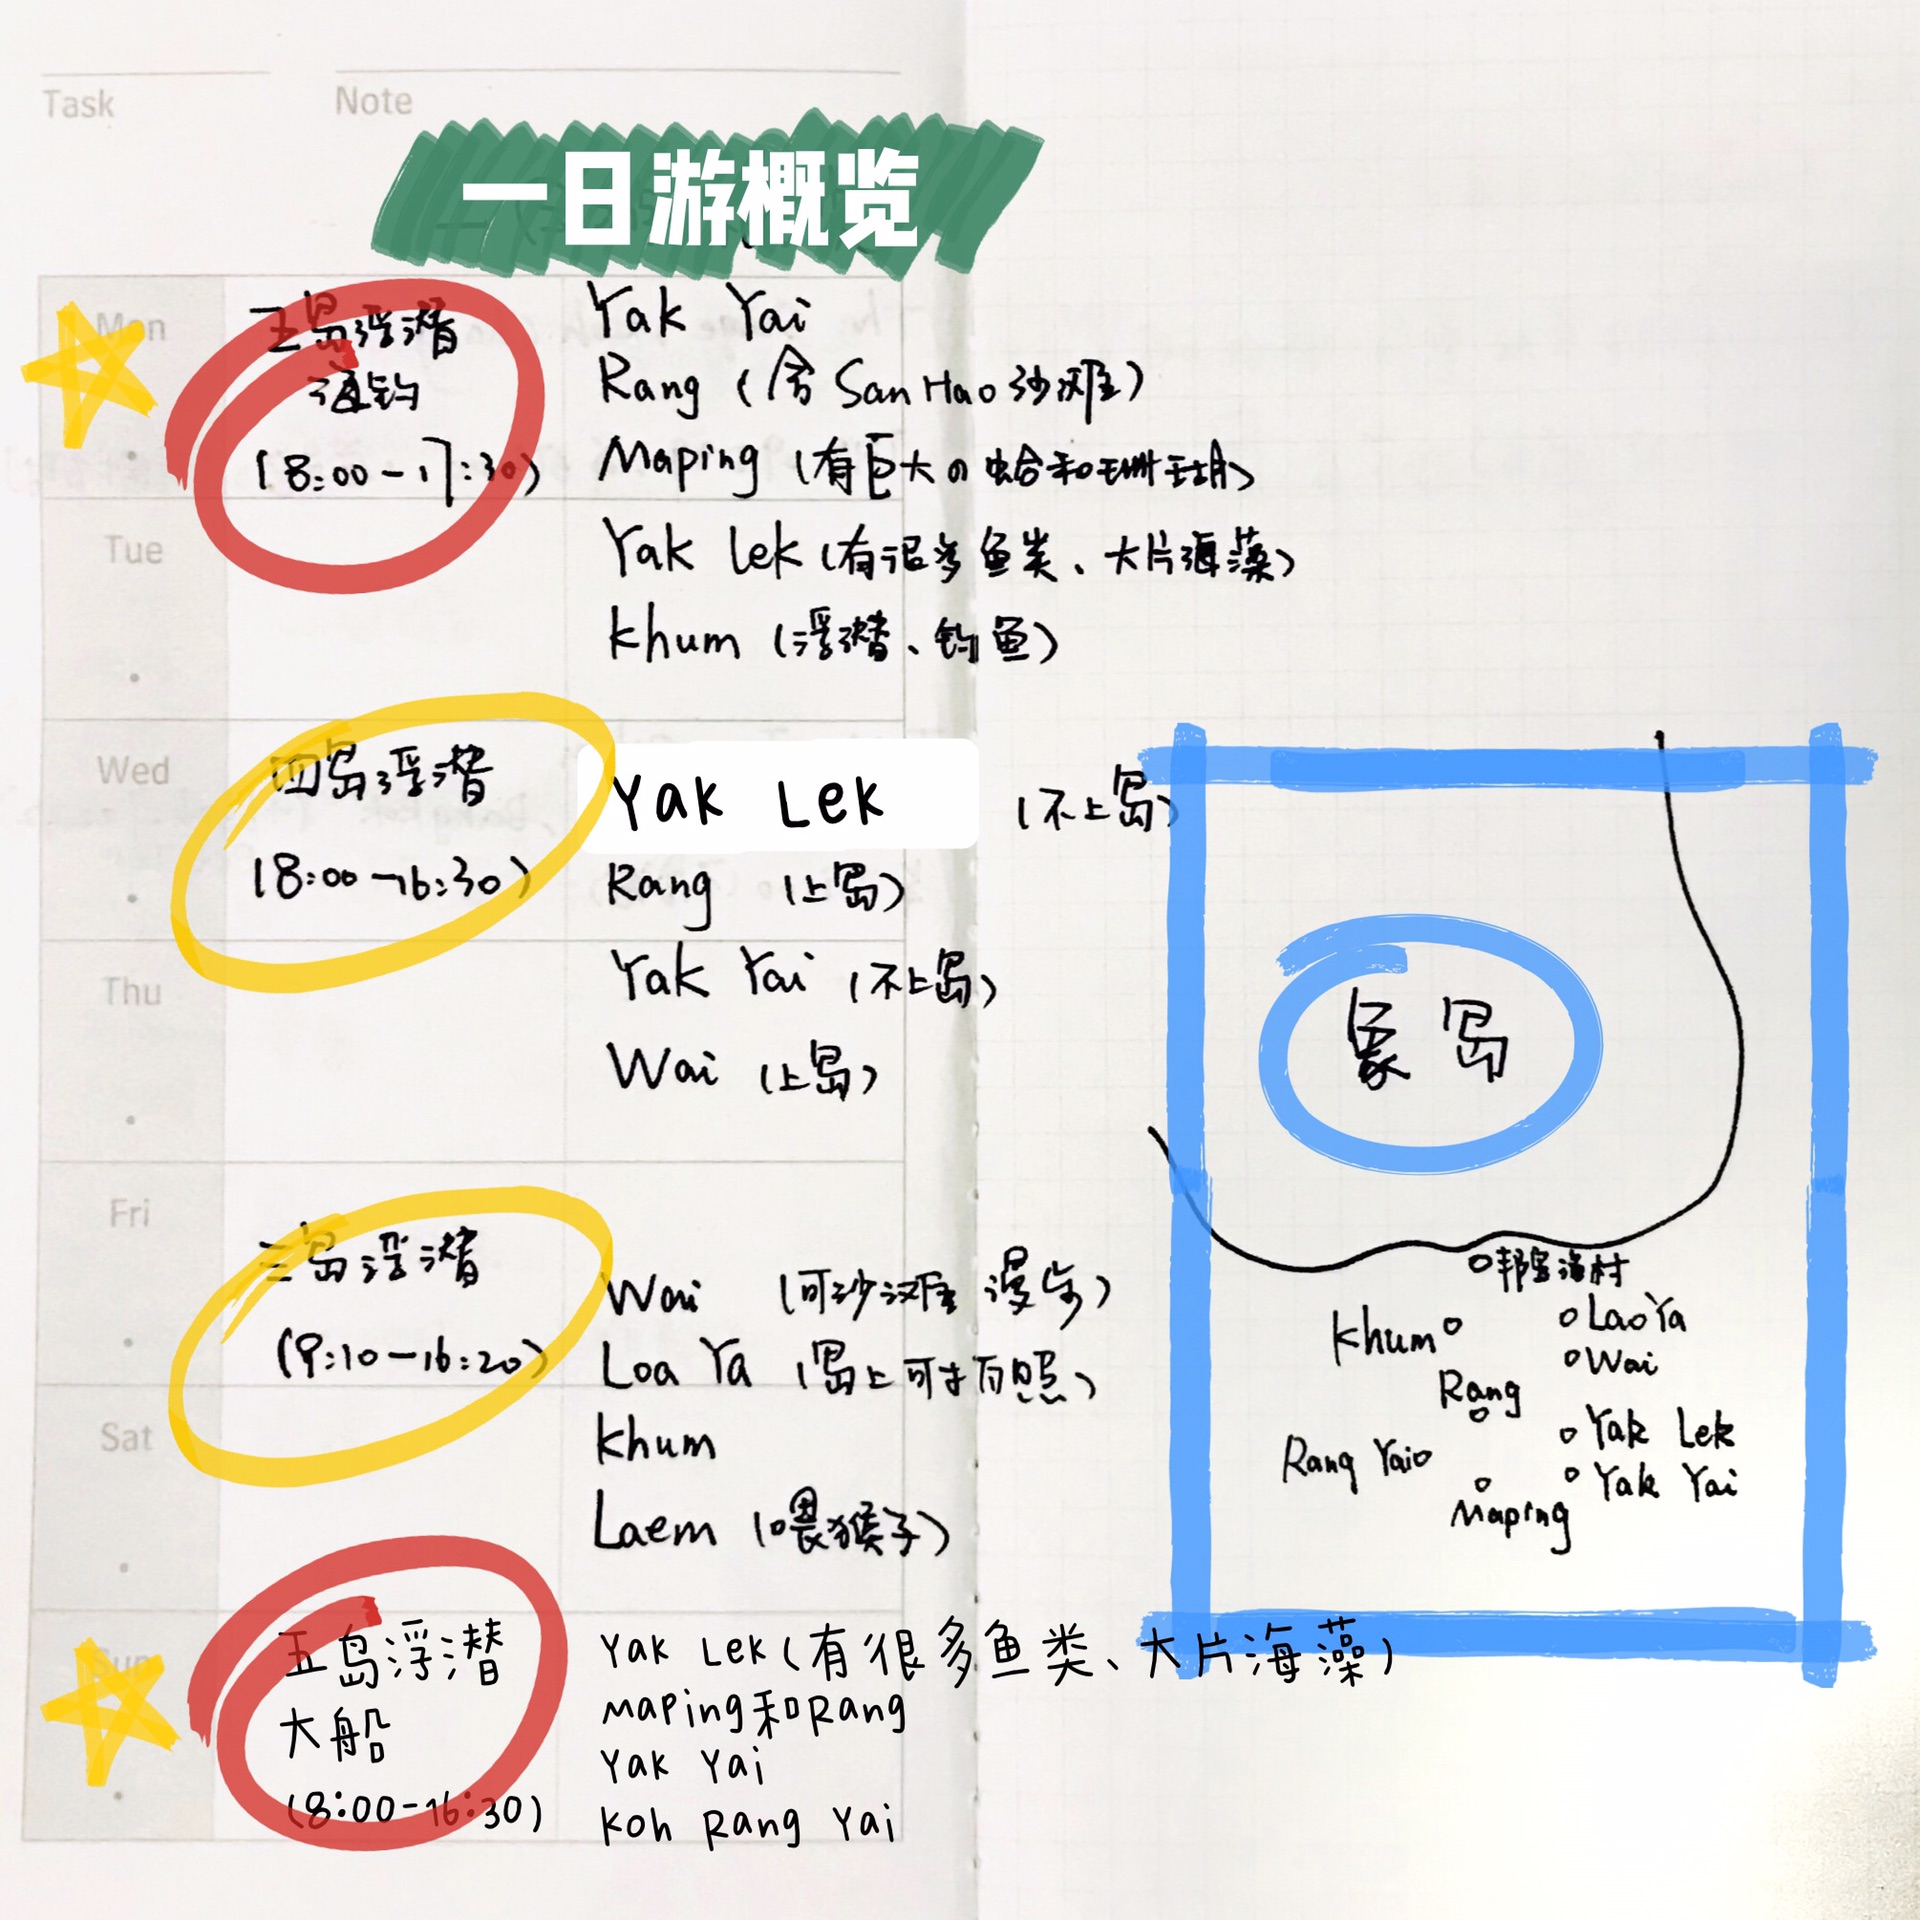 Task
Note
一日游概览
Mon
五岛浮潜
海钓
(8:00-17:30)
Yak Yai
Rang (含 San Hao 沙滩)
Maping (有巨大的蛤和珊瑚)
Tue
Yak Lek (有很多鱼类、大片海藻)
Khum (浮潜、钓鱼)
Wed
四岛浮潜
(8:00-16:30)
Yak Lek (不上岛)
Rang (上岛)
Yak Yai (不上岛)
Thu
Wai (上岛)
Fri
三岛浮潜
(9:10-16:20)
Wai (可沙滩漫步)
Loa Ya (岛上可拍照)
Khum
Sat
Laem (喂猴子)
Sun
五岛浮潜
大船
(8:00-16:30)
Yak Lek(有很多鱼类、大片海藻)
Maping和Rang
Yak Yai
Koh Rang Yai
象岛
邦宝渔村
Khum
LaoYa
Wai
Rang
Yak Lek
Rang Yai
Yak Yai
Maping